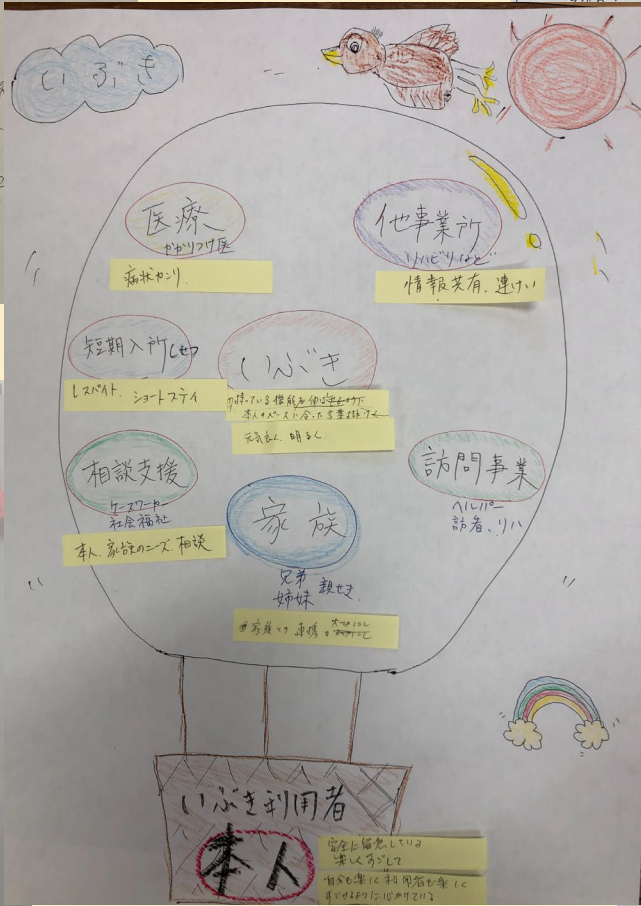 いぶき
医療
かかりつけ医
病状カンリ
他事業所
リハビリなど
情報共有、連けい
短期入所しせつ
レスパイト、ショートステイ
いぶき
持っている機能を
本人のペースに合った言葉掛け
元気良く、明るく
相談支援
ケースワーカー
社会福祉
本人、家族のニーズ 相談
訪問事業
ヘルパー
訪看、リハ
家族
兄弟
姉妹
親せき
家族との連携
いぶき利用者
本人
安全に留意している
楽しくすごして
自分も楽しく利用者も楽しく
すごせるように心がけている